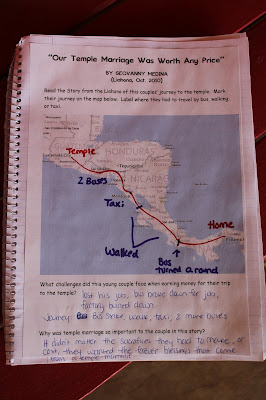 "Our Temple Marriage Was Worth Any Price"
BY GEOVANNY MEDINA
(Liahona, Oct. 2010)
Read the Story from the Liahona of this couples' journey to the temple. Mark
their journey on the map below. Label where they had to travel by bus, walking,
or taxi.
HONDURAS
Temple
Tegucigalpa
NICARAG
2 Buses
Taxi
Walked
Home
Bus
turned around
What challenges did this young couple face when earning money for their trip
to the temple? lost his job, bus broke down for job,
factory burned down
Journey: Bus strike, walk, taxi, 2 more buses
Why was temple marriage so important to the couple in this story?
It didn't matter the sacrifices they had to make or
cost, they wanted the forever blessings that come
from a temple marriage